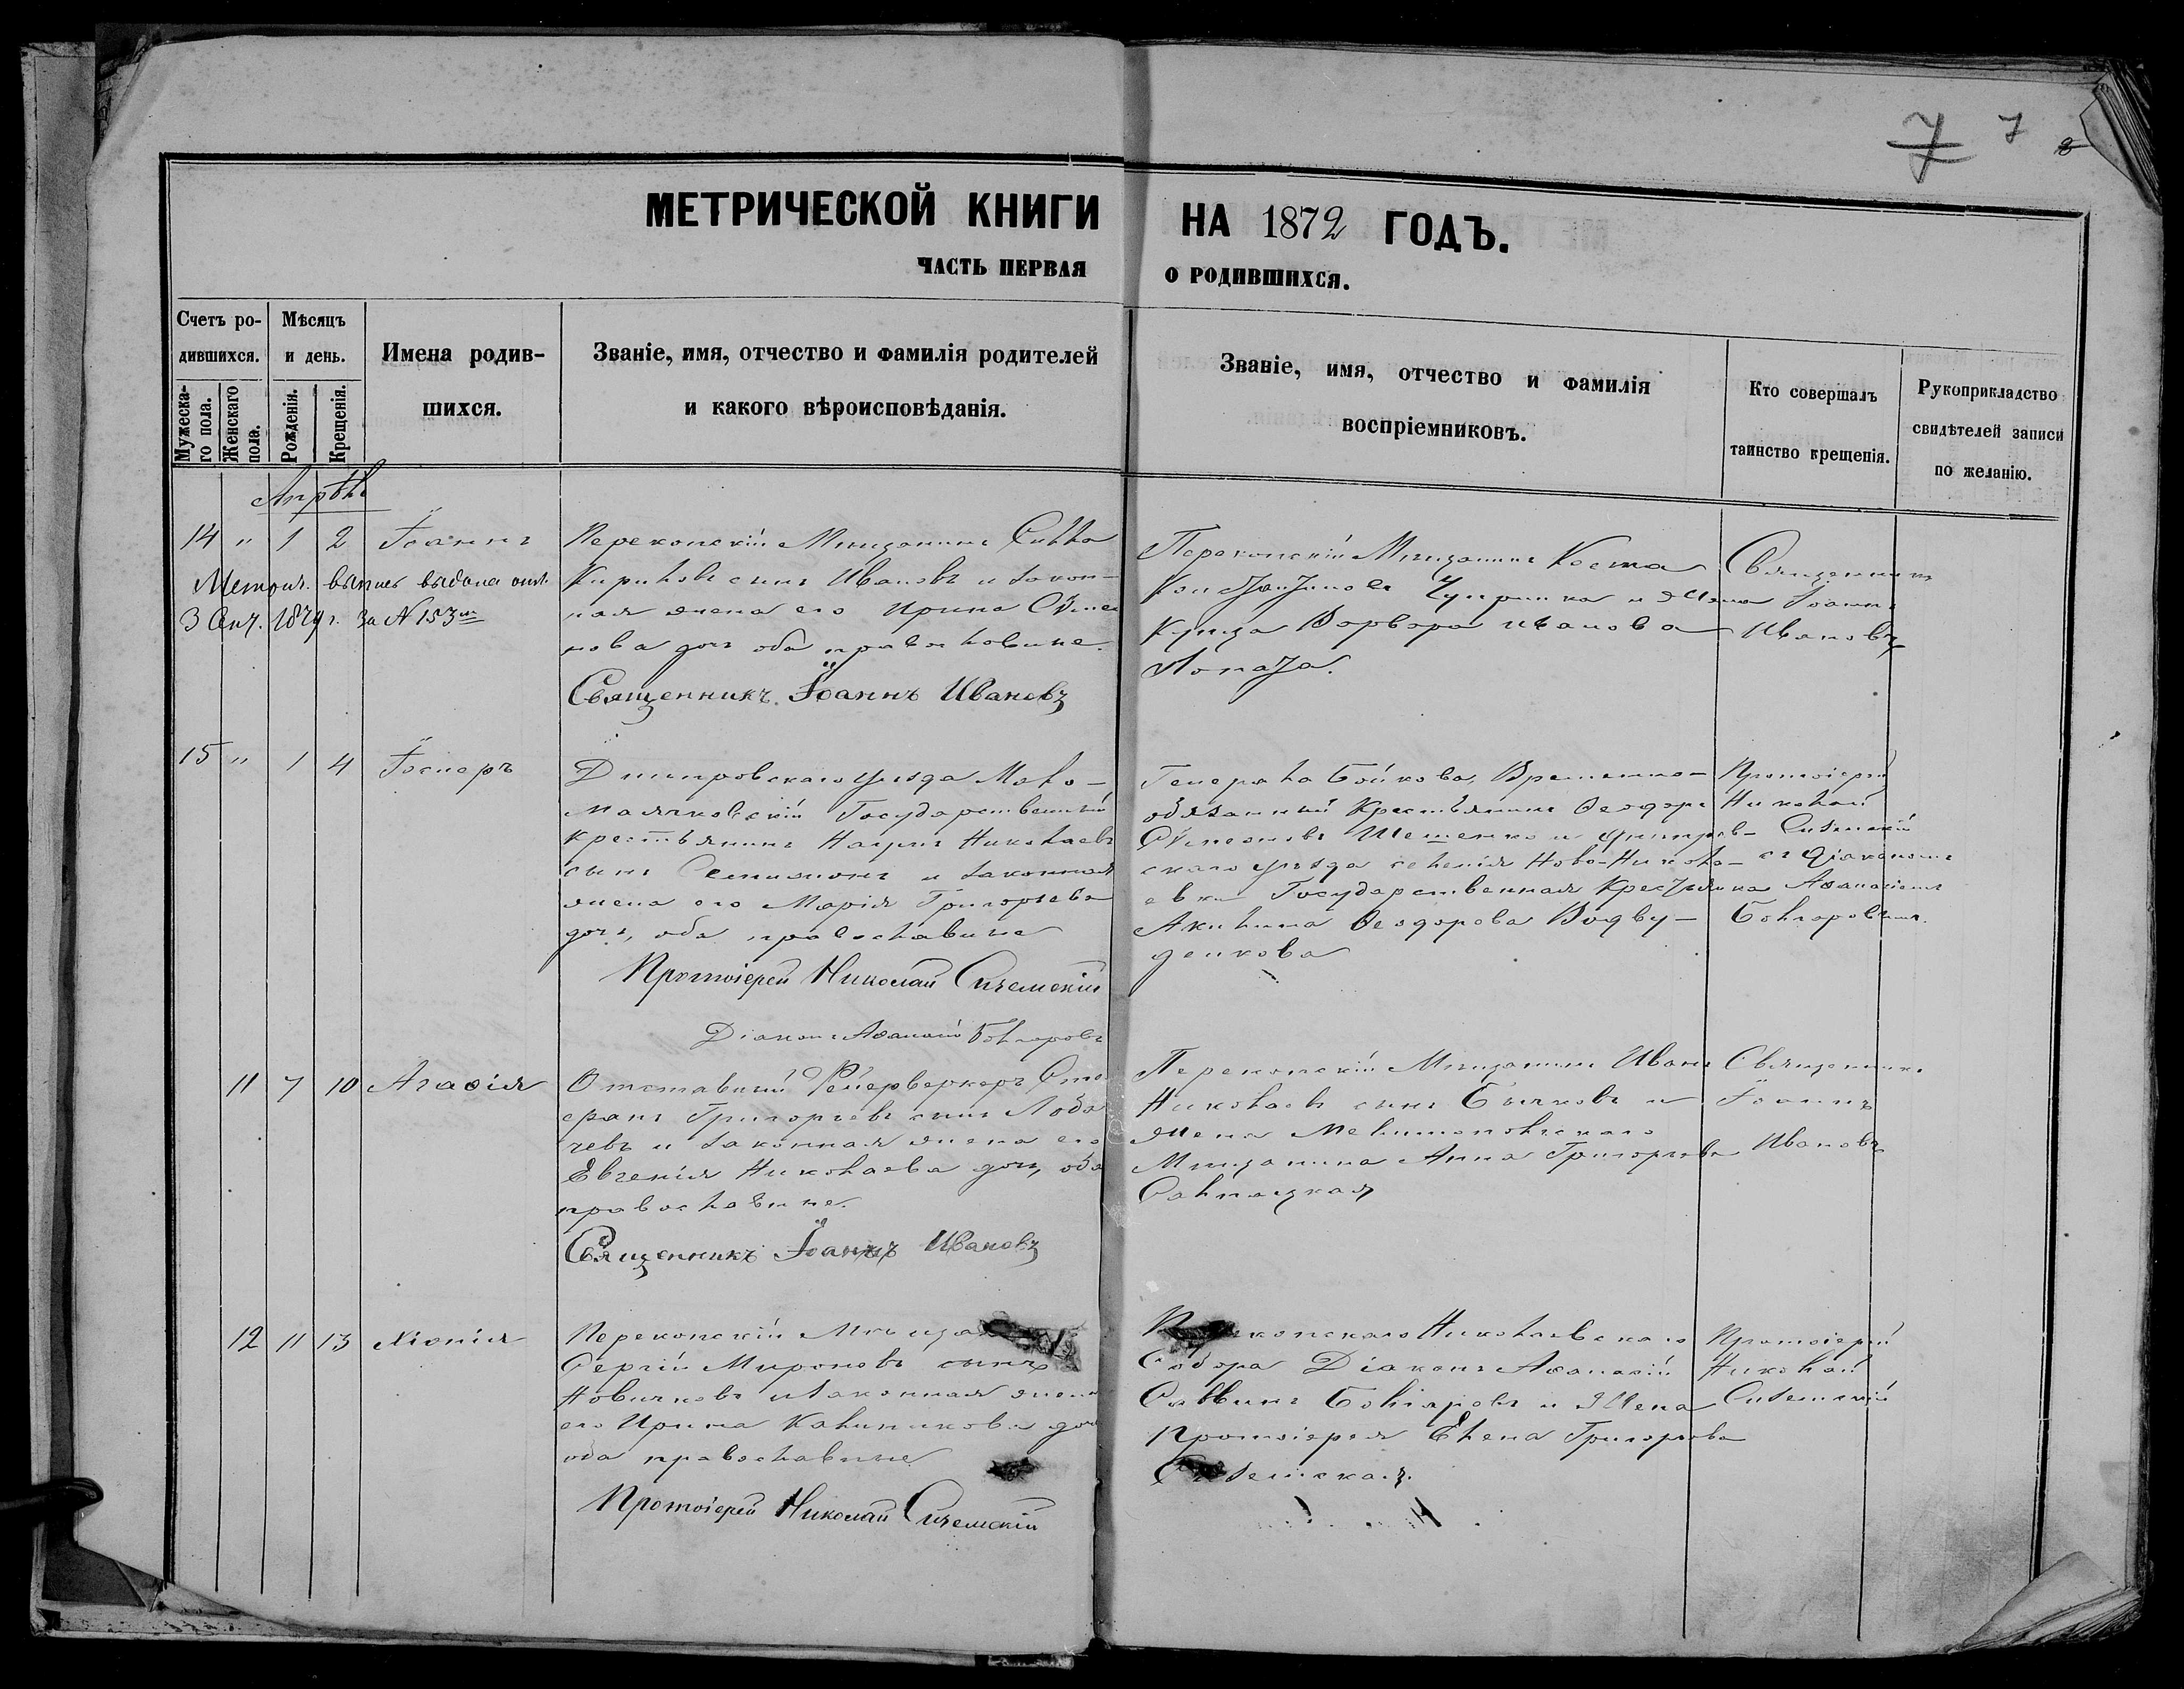 7 7
МЕТРИЧЕСКОЙ КНИГИ НА 1872 ГОДЪ.
ЧАСТЬ ПЕРВАЯ О РОДИВШИХСЯ.
Счетъ ро-
дившихся.
Мужеска-
го пола.
Женскаго
пола.
Мѣсяцъ
и день.
Рожденія.
Крещенія.
Имена родив-
шихся.
Званіе, имя, отчество и фамилія родителей
и какого вѣроисповѣданія.
Званіе, имя, отчество и фамилія
воспріемниковъ.
Кто совершалъ
таинство крещенія.
Рукоприкладство
свидѣтелей записи
по желанію.
Апрѣль
14 " 1 2 Іоаннъ
выпись выдана
3 Сент. 1879 г. за N 153
Перекопскій Мѣщанинъ Савва
Кириловъ сынъ Ивановъ и закон-
ная жена его Ирина
нова дочь оба православные.
Священникъ Іоаннъ Ивановъ
Перекопскій Мѣщанинъ Косма
Константиновъ и жена
Купца Варвара Иванова
Лопата.
Священникъ
Іоаннъ
Ивановъ
15 " 1 4 Іосифъ
Днѣпровскаго уѣзда Мало-
маячковскій Государственный
крестьянинъ Наумъ Николаевъ
сынъ и законная
жена его Марія Григорьева
дочь, оба православные
Протоіерей Николай Сиземскій
Діаконъ Аѳанасій Болгаровъ
Генерала Бойкова, Временно-
обязанный Крестьянинъ Ѳеодоръ
Шешенко и Днѣпров-
скаго уѣзда селенія Ново-Никола-
евки Государственная крестьянка
Акилина Ѳеодорова
денкова
Протоіерей
Николай
Сиземскій
съ Діакономъ
Аѳанасіемъ
Болгаровымъ.
11 7 10 Агаѳія
Отставной Фейерверкеръ Сте-
фанъ Григорьевъ сынъ
чевъ и законная жена его
Евгенія Николаева дочь, оба
православные.
Священникъ Іоаннъ Ивановъ
Перекопскій Мѣщанинъ Иванъ
Николаевъ сынъ Бычковъ и
жена Мелитопольскаго
Мѣщанина Анна Григорьева
Священникъ
Іоаннъ
Ивановъ
12 11 13 Хіонія
Перекопскій
Сергій Мироновъ сынъ
Новичковъ и законная жена
его Ирина Калиникова дочь
оба православные
Протоіерей Николай Сиземскій
Перекопскаго Николаевскаго
Собора Діаконъ Аѳанасій
Саввинъ Болгаровъ и жена
Протоіерея Елена Григорьева
Сиземская.
Протоіерей
Николай
Сиземскій